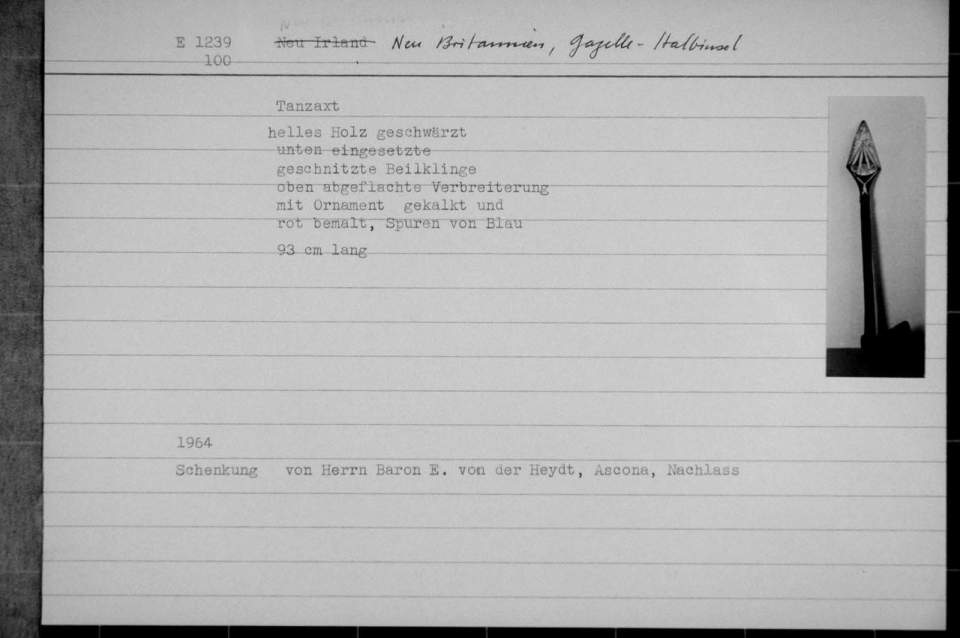 E 1239 Neu Irland Neu Britannien, Gazelle-Halbinsel
100
Tanzaxt
helles Holz geschwärzt
unten eingesetzte
geschnitzte Beilklinge
oben abgeflachte Verbreiterung
mit Ornament gekalkt und
rot bemalt, Spuren von Blau
93 cm lang
1964
Schenkung von Herrn Baron E. von der Heydt, Ascona, Nachlass